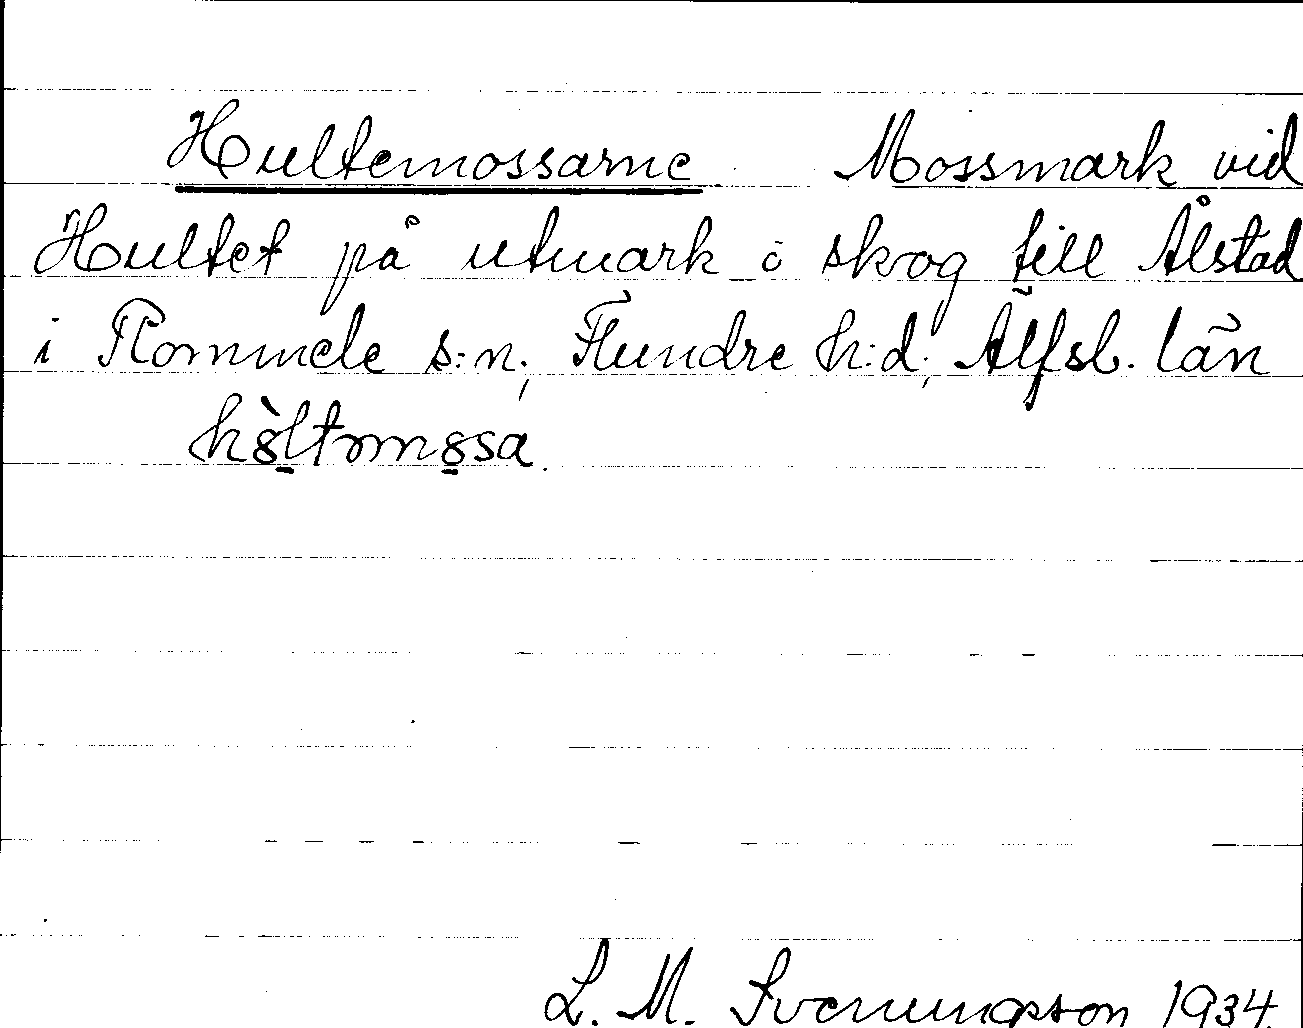 Hultemossarne Mossmark vid
Hultet på utmark i skog till Ålstad
i Rommele s:n, Flundre h:d, Älfsb. län
hòltmosa
L. M. Svenungsson 1934